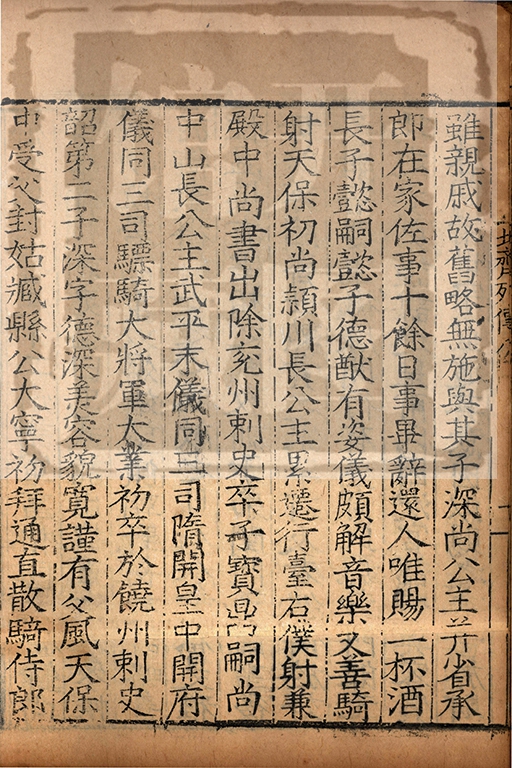 雖親戚故舊略無施與其子深尚公主并省承
郎在家佐事十餘日事畢辭還人唯賜一杯酒
長子懿嗣懿子德猷有姿儀頗解音樂又善騎
射天保初尚潁川長公主累遷行臺右僕射兼
殿中尚書出除兖州刺史卒子寶鼎嗣尚
中山長公主武平末儀同三司隋開皇中開府
儀同三司驃騎大將軍大業初卒於饒州刺史
韶第二子深字德深美容貌寬謹有父風天保
中受父封姑臧縣公大寧初拜通直散騎侍郎